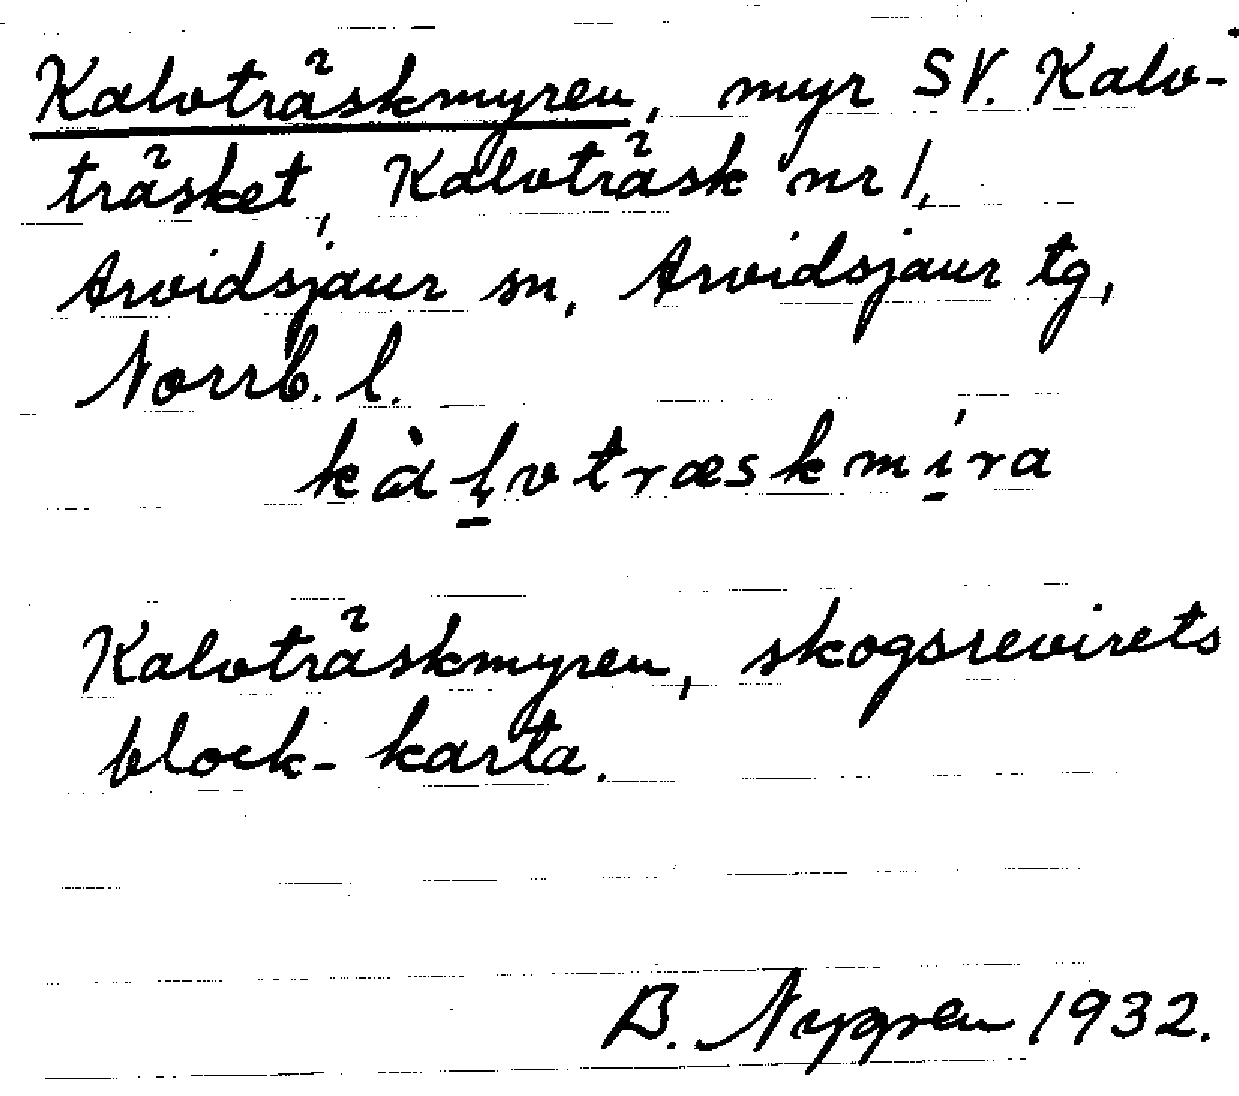 Kalvträskmyren, myr SV. Kalv-
träsket, Kalvträsk nr 1,
Arvidsjaur sn, Arvidsjaur tg,
Norrb. l.
kàḷvtræskmíra
Kalvträskmyren, skogsrevirets
block-karta.
B. Nygren 1932.